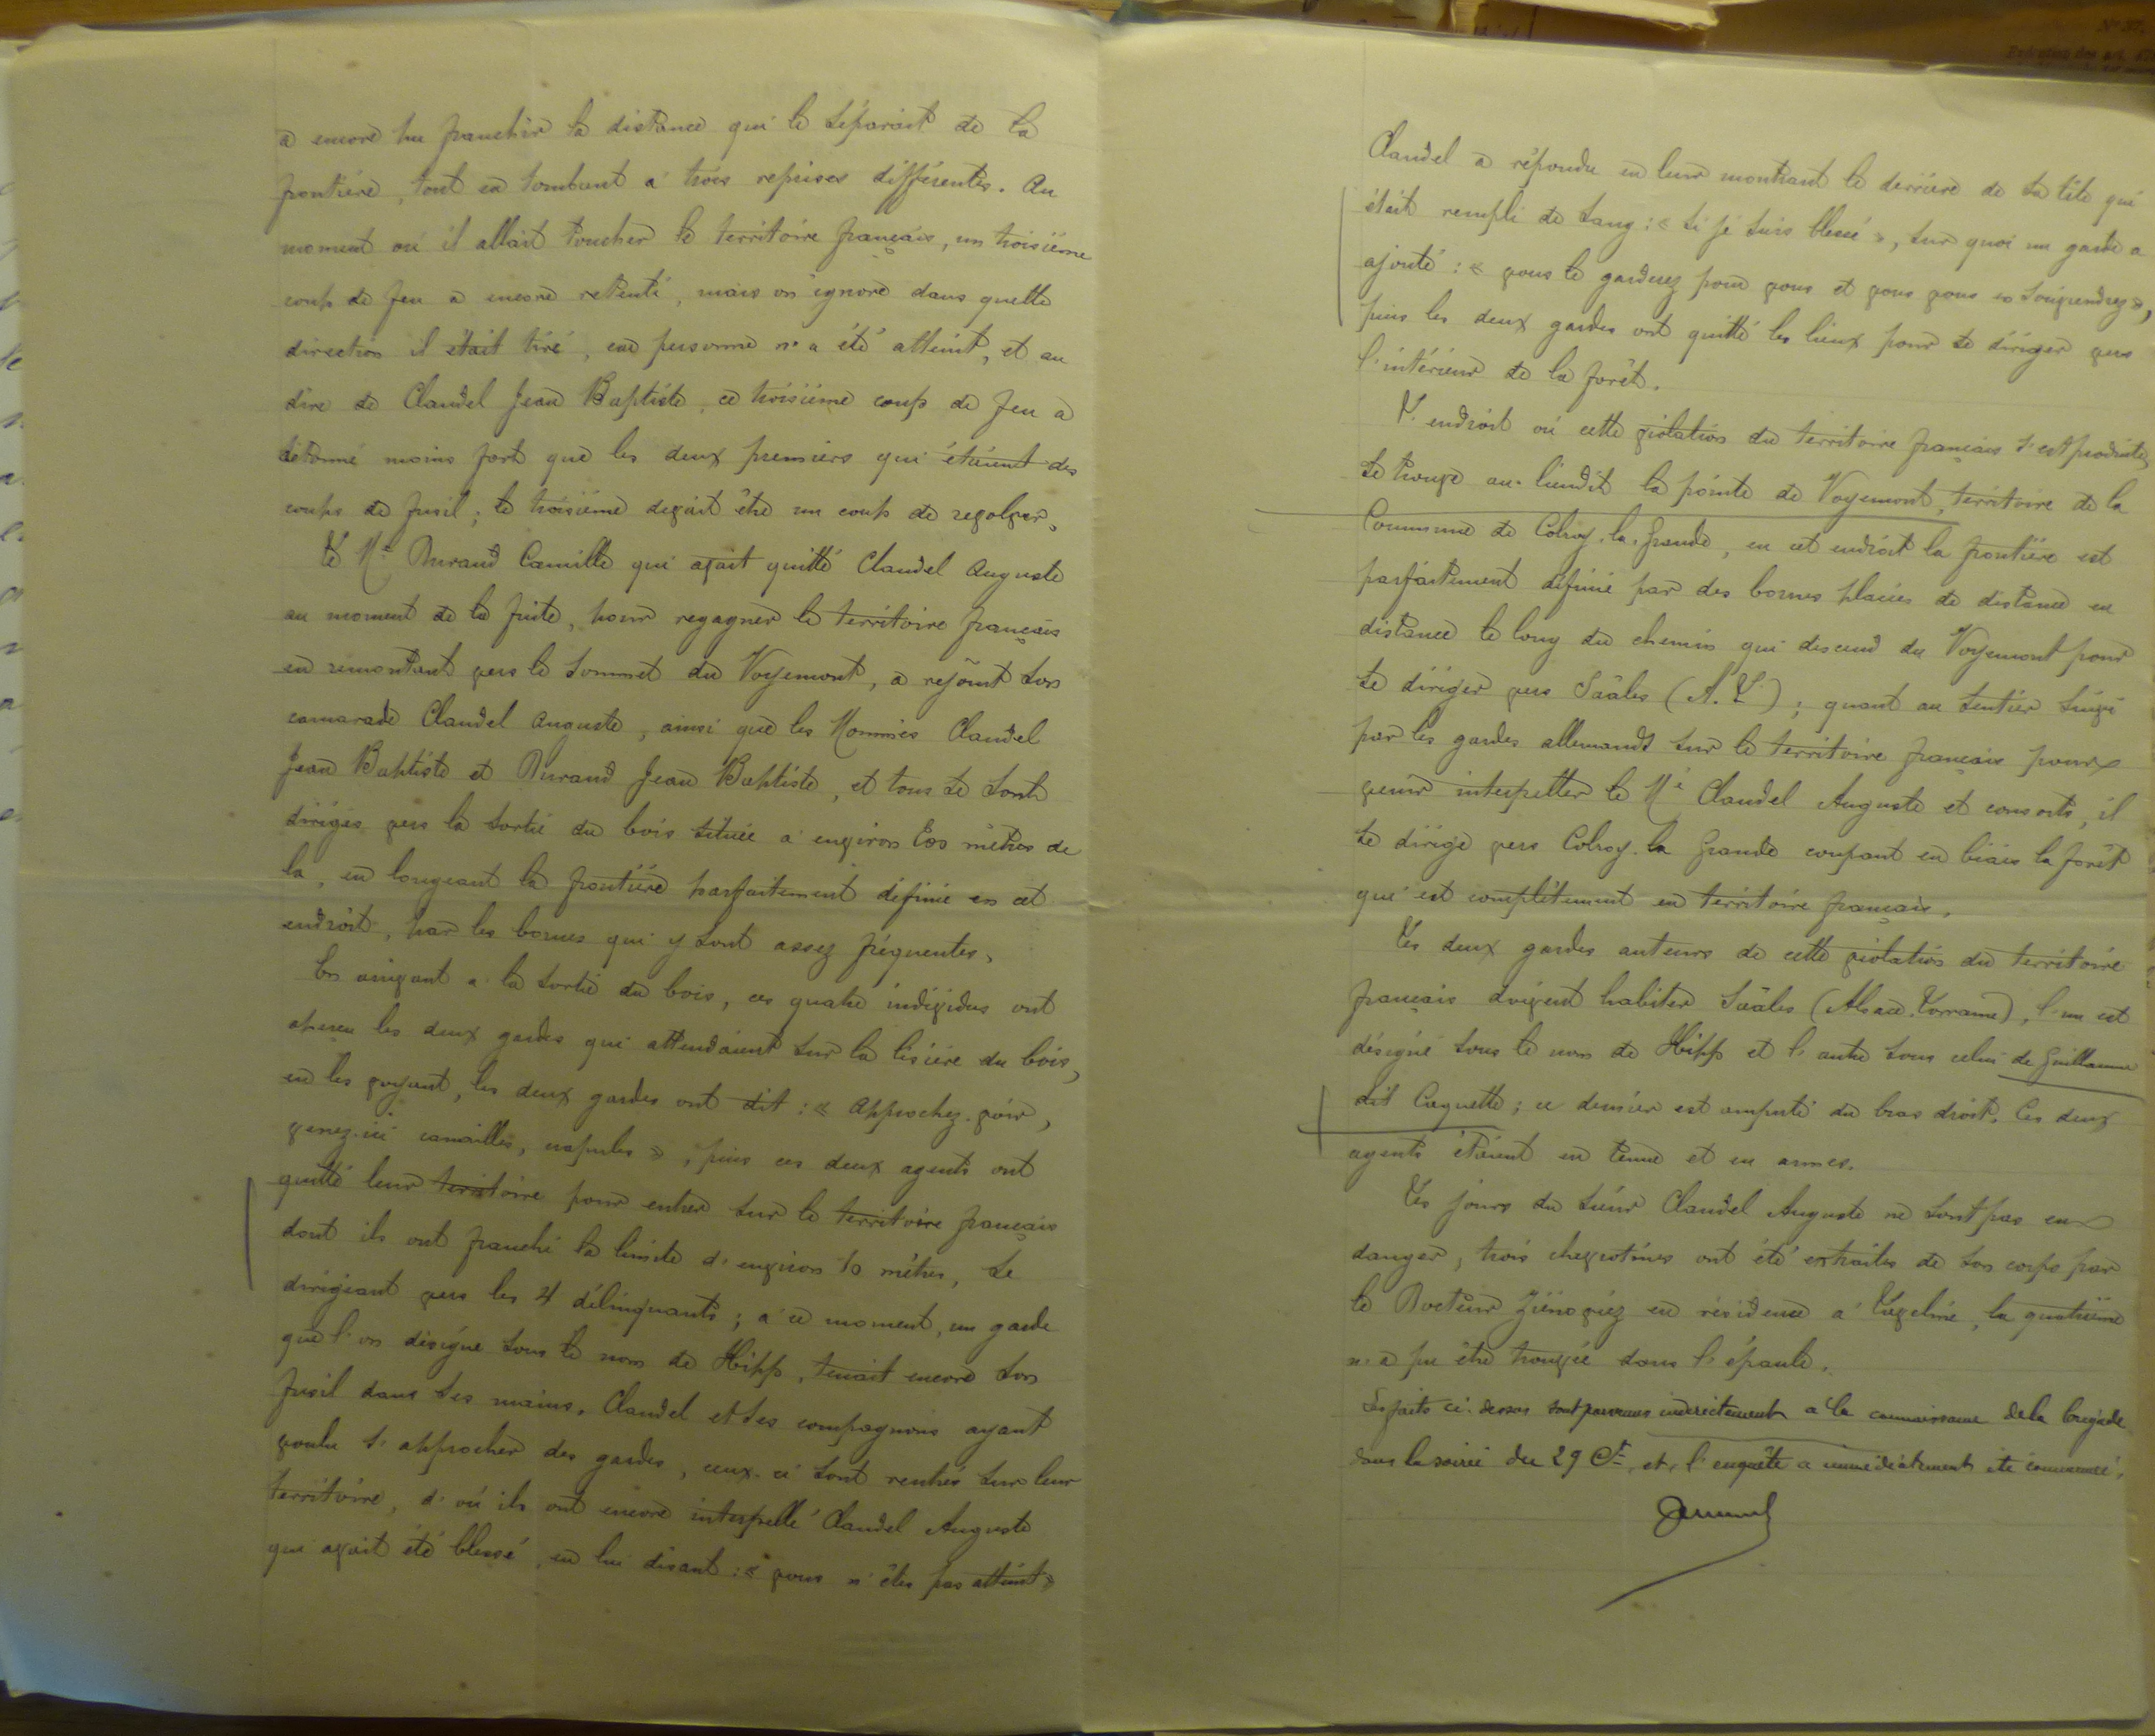 a encore pu franchir la distance qui le séparait de la
frontière, tout en tombant à trois reprises différentes. Au
moment où il allait toucher le territoire français, un troisième
coup de feu a encore retenti, mais on ignore dans quelle
direction il était tiré, car personne n'a été atteint, et au
dire de Claudel Jean Baptiste, ce troisième coup de feu a
détonné moins fort que les deux premiers qui étaient des
coups de fusil; le troisième devait être un coup de revolver.
Le Né Durand Camille qui avait quitté Claudel Auguste
au moment de la fuite, pour regagner le territoire français
en remontant vers le sommet du Voyemont, a rejoint son
camarade Claudel Auguste, ainsi que les Nommés Claudel
Jean Baptiste et Durand Jean Baptiste, et tous se sont
dirigés vers la sortie du bois située à environ mètres de
là, en longeant la frontière parfaitement définie en cet
endroit, par les bornes qui y sont assez fréquentes.
En arrivant à la sortie du bois, ces quatre individus ont
aperçu les deux gardes qui attendaient sur la lisière du bois,
en les voyant, les deux gardes ont dit : « Approchez-voir,
venez-ici canailles, crapules », puis ces deux agents ont
quitté leur territoire pour entrer sur le territoire français
dont ils ont franchi la limite d'environ 10 mètres, se
dirigeant vers les 4 délinquants; à ce moment, un garde
que l'on désigne sous le nom de Hipp, tenait encore son
fusil dans ses mains. Claudel et ses compagnons ayant
voulu s'approcher des gardes, ceux-ci sont rentrés sur leur
territoire, d'où ils ont encore interpellé Claudel Auguste
qui avait été blessé, en lui disant : « vous n'êtes pas atteint »
Claudel a répondu en leur montrant le derrière de sa tête qui
était rempli de sang : « si je suis blessé », sur quoi un garde a
ajouté : « vous le garderez pour vous et vous vous en souviendrez »,
puis les deux gardes ont quitté les lieux pour se diriger vers
l'intérieur de la forêt.
L'endroit où cette violation du territoire français s'est produite,
se trouve au lieudit la pointe de Voyemont, territoire de la
Commune de Colroy-la-Grande, en cet endroit la frontière est
parfaitement définie par des bornes placées de distance en
distance le long du chemin qui descend du Voyemont pour
se diriger vers Saâles (A.L.); quant au sentier suivi
par les gardes allemands sur le territoire français pour
venir interpeller le Né Claudel Auguste et consorts, il
se dirige vers Colroy-la Grande coupant en biais la forêt
qui est complètement en territoire français.
Les deux gardes auteurs de cette violation du territoire
français doivent habiter Saâles (Alsace-Lorraine), l'un est
désigné sous le nom de Hipp et l'autre sous celui de Guillaume
dit Coquette; ce dernier est amputé du bras droit. Ces deux
agents étaient en tenue et en armes.
Les jours du sieur Claudel Auguste ne sont pas en
danger, trois chevrotines ont été extraites de son corps par
le Docteur en résidence à Lubeline, la quatrième
n'a pu être trouvée dans l'épaule.
Les faits ci-dessus sont parvenus indirectement à la connaissance de la brigade
dans la soirée du 29 Ct, et l'enquête a immédiatement été commencée.